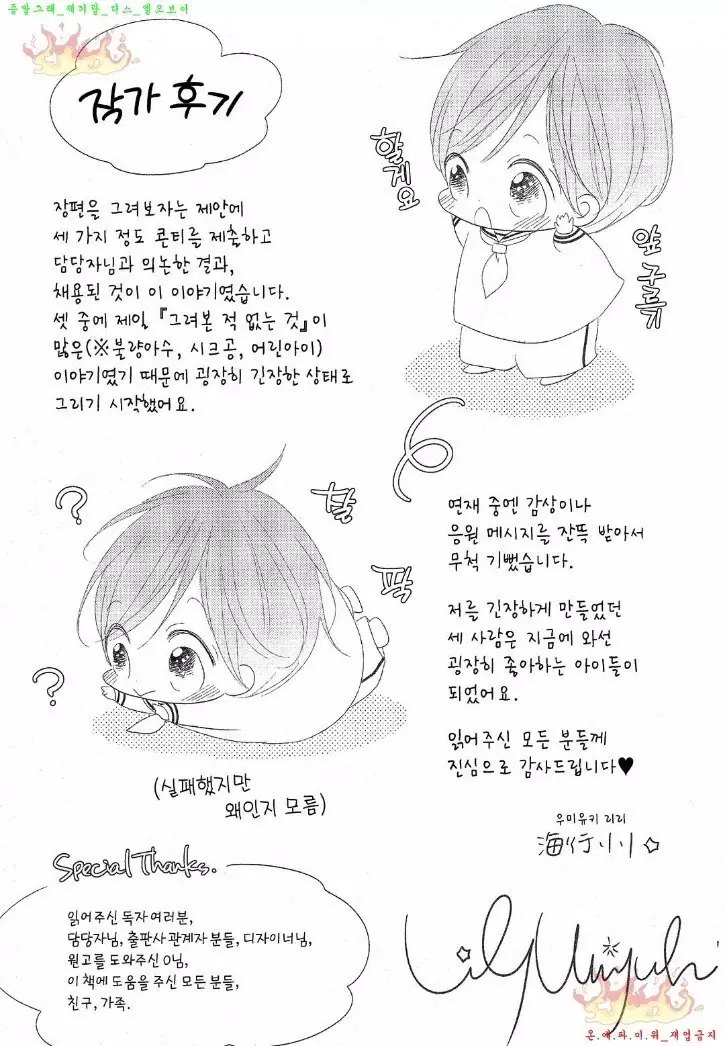 중앙그래_제기랄_디스_월오브어
작가 후기
할게요
앞 구르기
장편을 그려보자는 제안에
세 가지 정도 콘티를 제출하고
담당자님과 의논한 결과,
채용된 것이 이 이야기였습니다.
셋 중에 제일 『그려본 적 없는 것』이
많은(※불량아수, 시크공, 어린아이)
이야기였기 때문에 굉장히 긴장한 상태로
그리기 시작했어요.
?
?
철
퍽
(실패했지만
왜인지 모름)
연재 중엔 감상이나
응원 메시지를 잔뜩 받아서
무척 기뻤습니다.
저를 긴장하게 만들었던
세 사람은 지금에 와선
굉장히 좋아하는 아이들이
되었어요.
읽어주신 모든 분들께
진심으로 감사드립니다♥
우미유키 리리
海行リリ
Special Thanks.
읽어주신 독자 여러분,
담당자님, 출판사 관계자 분들, 디자이너님,
원고를 도와주신 O님,
이 책에 도움을 주신 모든 분들,
친구, 가족.
온.에.파.미.워_재업금지